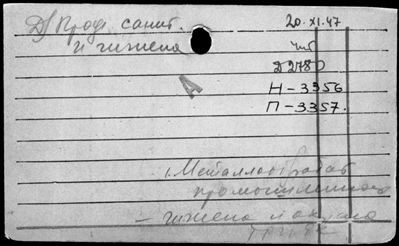 Д/ Пров. санит.
и гигиена
20.XI.47
чит
Д 2780
Н-3356
П-3357.
А
Металлообрабат
промышленность
- гигиена